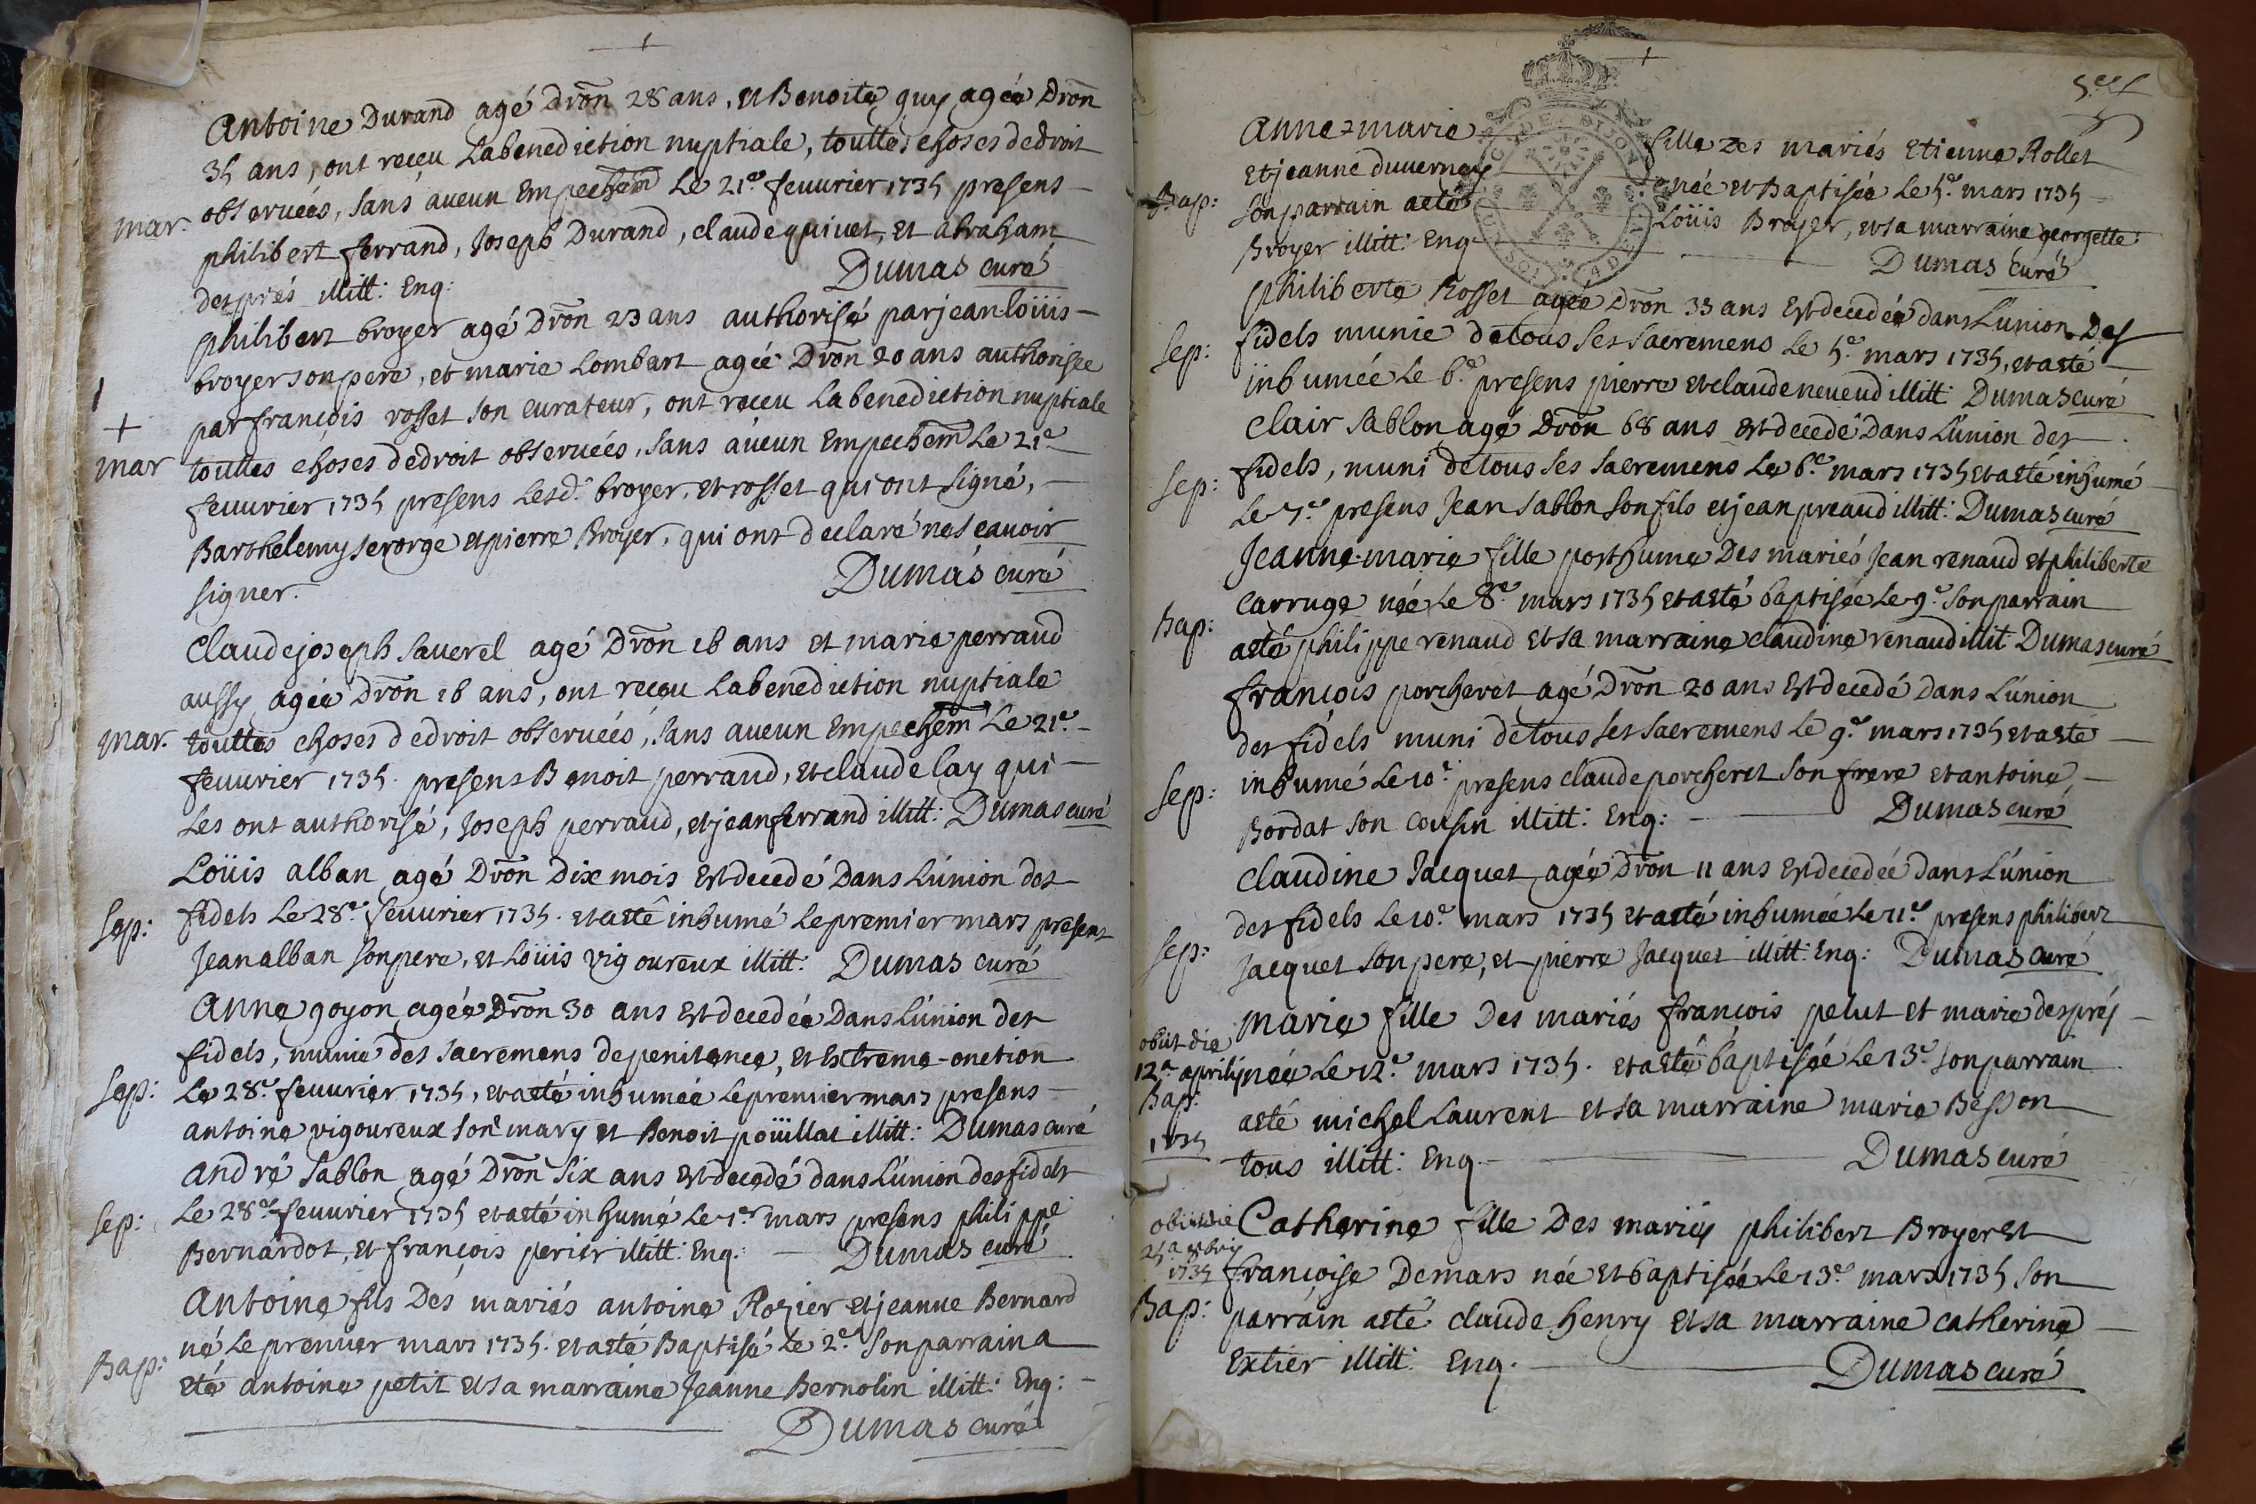 Antoine Durand agé dron 28 ans, et Benoite guy agée dron
35 ans, ont reçeu la benediction nuptiale, touttes choses de droit
mar. observées, sans aucun Empechem le 21e feuurier 1735 presens
philibert ferrand, Joseph Durand, claude quiuet, et abraham
després illitt: Enq: Dumas curé
philibert broyer agé dron 23 ans authorisé par jean-loüis
broyer son pere, et marie Lombart agée dron 20 ans authorisée
+ par françois rosset son curateur, ont receu la benediction nuptiale
mar touttes choses de droit obseruées, sans aucun Empechem le 21e
feuurier 1735 presens lesd. broyer, et rosset qui ont signé,
Barthelemy serorge et pierre Broyer, qui ont declaré ne sçauoir
signer. Dumas curé
Claude joseph sauerel agé dron 18 ans et marie perraud
aussy agée dron 18 ans, ont reçeu la benediction nuptiale
mar. touttes choses de droit obseruées, sans aucun Empechem le 21e
feuurier 1735. presens Benoit perraud, et claude lay qui
les ont authorisé, Joseph perraud, et jean ferrand illitt: Dumas curé
Loüis alban agé dron dix mois est decedé dans l'union des
sep: fidels le 28e feuurier 1735. et a eté inhumé le premier mars presens
Jean alban son pere, et Loüis vigoureux illitt: Dumas curé
Anne goyon agée dron 30 ans est decedée dans l'union des
fidels, munie des sacremens de penitence, et extreme-onction
sep: le 28e feuurier 1735, et a eté inhumée le premier mars presens
antoine vigoureux son mary et Benoit poüillat illitt: Dumas curé
André sablon agé dron six ans est decedé dans l'union des fidels
sep: le 28e feuurier 1735 et a eté inhumé le 1er mars presens philippe
Bernardot, et françois perier illitt: Enq: Dumas curé
Antoine fils des mariés antoine Rozier et jeanne Bernard
né le premier mars 1735. et a eté Baptisé le 2e son parrain a
Bap: eté antoine petit et sa marraine Jeanne Bernolin illitt: Enq:
Dumas curé
Anne-marie fille des mariés Etienne Rollet
et jeanne duuernay née et Baptisée le 5e mars 1735
Bap: son parrain a eté Loüis Broyer, et sa marraine georgette
Broyer illitt: Enq Dumas curé
philiberte Rosset agée dron 33 ans est decedée dans l'union des
sep: fidels munie de tous ses sacremens le 5e mars 1735, et a eté
inhumée le 6e presens pierre et claude neueud illitt: Dumas curé
Clair sablon agé dron 68 ans est decedé dans l'union des
sep: fidels, muni de tous ses sacremens le 6e mars 1735 et a eté inhumé
le 7e presens Jean sablon son fils et jean preaud illitt: Dumas curé
Jeanne-marie fille posthume des mariés Jean renaud et philiberte
Carruge née le 8e mars 1735 et a eté baptisée le 9e son parrain
Bap: a eté philippe renaud et sa marraine claudine renaud illit Dumas curé
françois porcheret agé dron 20 ans est decedé dans l'union
des fidels muni de tous ses sacremens le 9e mars 1735 et a eté
sep: inhumé le 10e presens claude porcheret son frere et antoine
Bordat son cousin illitt: Enq: Dumas curé
Claudine Jacquet agée dron 11 ans est decedée dans l'union
des fidels le 10e mars 1735 et a eté inhumée le 11e presens philibert
sep: Jacquet son pere, et pierre Jacquet illitt: Enq: Dumas curé
obiit die Marie fille des mariés françois pelut et marie després
12a aprilis née le 12e mars 1735. et a eté baptisée le 13e son parrain
Bap: a eté michel Laurent et sa marraine marie Besson
1735 tous illitt: Enq. Dumas curé
obiit die Catherine fille des mariés philibert Broyer et
25a 1735 françoise Demars née et baptisée le 13e mars 1735 son
Bap: parrain a eté claude henry et sa marraine catherine
Extier illitt: Enq. Dumas curé